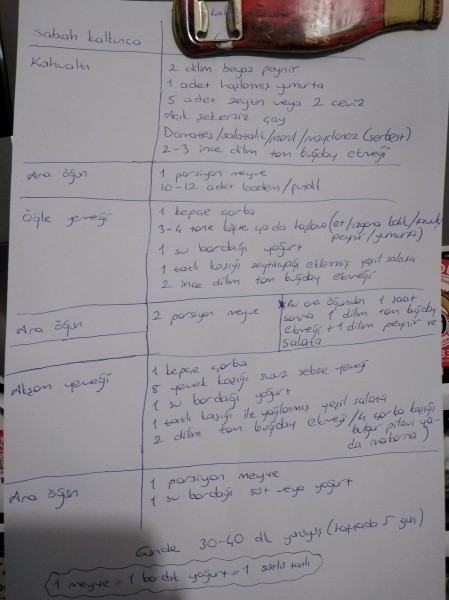 Sabah kalkınca
Kahvaltı
2 dilim beyaz peynir
1 adet haşlanmış yumurta
5 adet zeytin veya 2 ceviz
Açık şekersiz çay
Domates/salatalık/marul/maydanoz (serbest)
2-3 ince dilim tam buğday ekmeği
Ara öğün
1 porsiyon meyve
10-12 adet badem/fındık
Öğle yemeği
1 kepçe çorba
3-4 tane köfte ya da haşlama (et/ızgara balık/tavuk/
peynir/yumurta)
1 su bardağı yoğurt
1 tatlı kaşığı zeytinyağı eklenmiş yeşil salata
2 ince dilim tam buğday ekmeği
Ara öğün
2 porsiyon meyve
* Bu ara öğünden 1 saat
sonra 1 dilim tam buğday
ekmeği + 1 dilim peynir ve
salata
Akşam yemeği
1 kepçe çorba
8 yemek kaşığı susuz sebze yemeği
1 su bardağı yoğurt
1 tatlı kaşığı ile yağlanmış yeşil salata
2 dilim tam buğday ekmeği/4 çorba kaşığı
bulgur pilavı ya
da makarna)
Ara öğün
1 porsiyon meyve
1 su bardağı süt veya yoğurt
Günde 30-40 dk yürüyüş (haftada 5 gün)
1 meyve = 1 bardak yoğurt = 1 sütlü tatlı